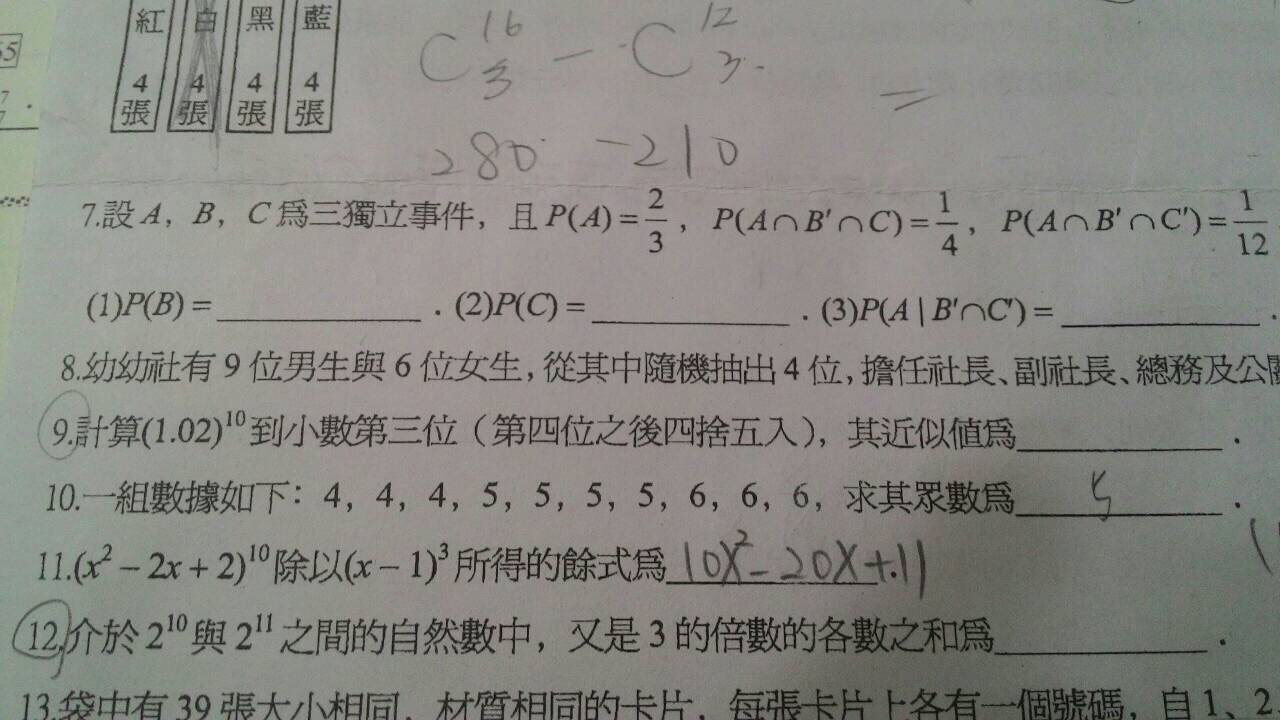 紅 白 黑 藍
4 4 4 4
張 張 張 張
C¹⁶₃ − C¹²₃
=
280 − 210
7.設 A,B,C 為三獨立事件,且 P(A)=2/3,P(A∩B′∩C)=1/4,P(A∩B′∩C′)=1/12
(1)P(B)=____________.(2)P(C)=____________.(3)P(A|B′∩C′)=____________.
8.幼幼社有 9 位男生與 6 位女生,從其中隨機抽出 4 位,擔任社長、副社長、總務及公關
9.計算(1.02)¹⁰到小數第三位(第四位之後四捨五入),其近似值為____________.
10.一組數據如下:4,4,4,5,5,5,5,6,6,6,求其眾數為 5 .
11.(x²−2x+2)¹⁰除以(x−1)³所得的餘式為 10x²−20x+11 .
12.介於 2¹⁰與 2¹¹之間的自然數中,又是 3 的倍數的各數之和為____________.
13.袋中有 39 張大小相同,材質相同的卡片,每張卡片上各有一個號碼,自 1、2